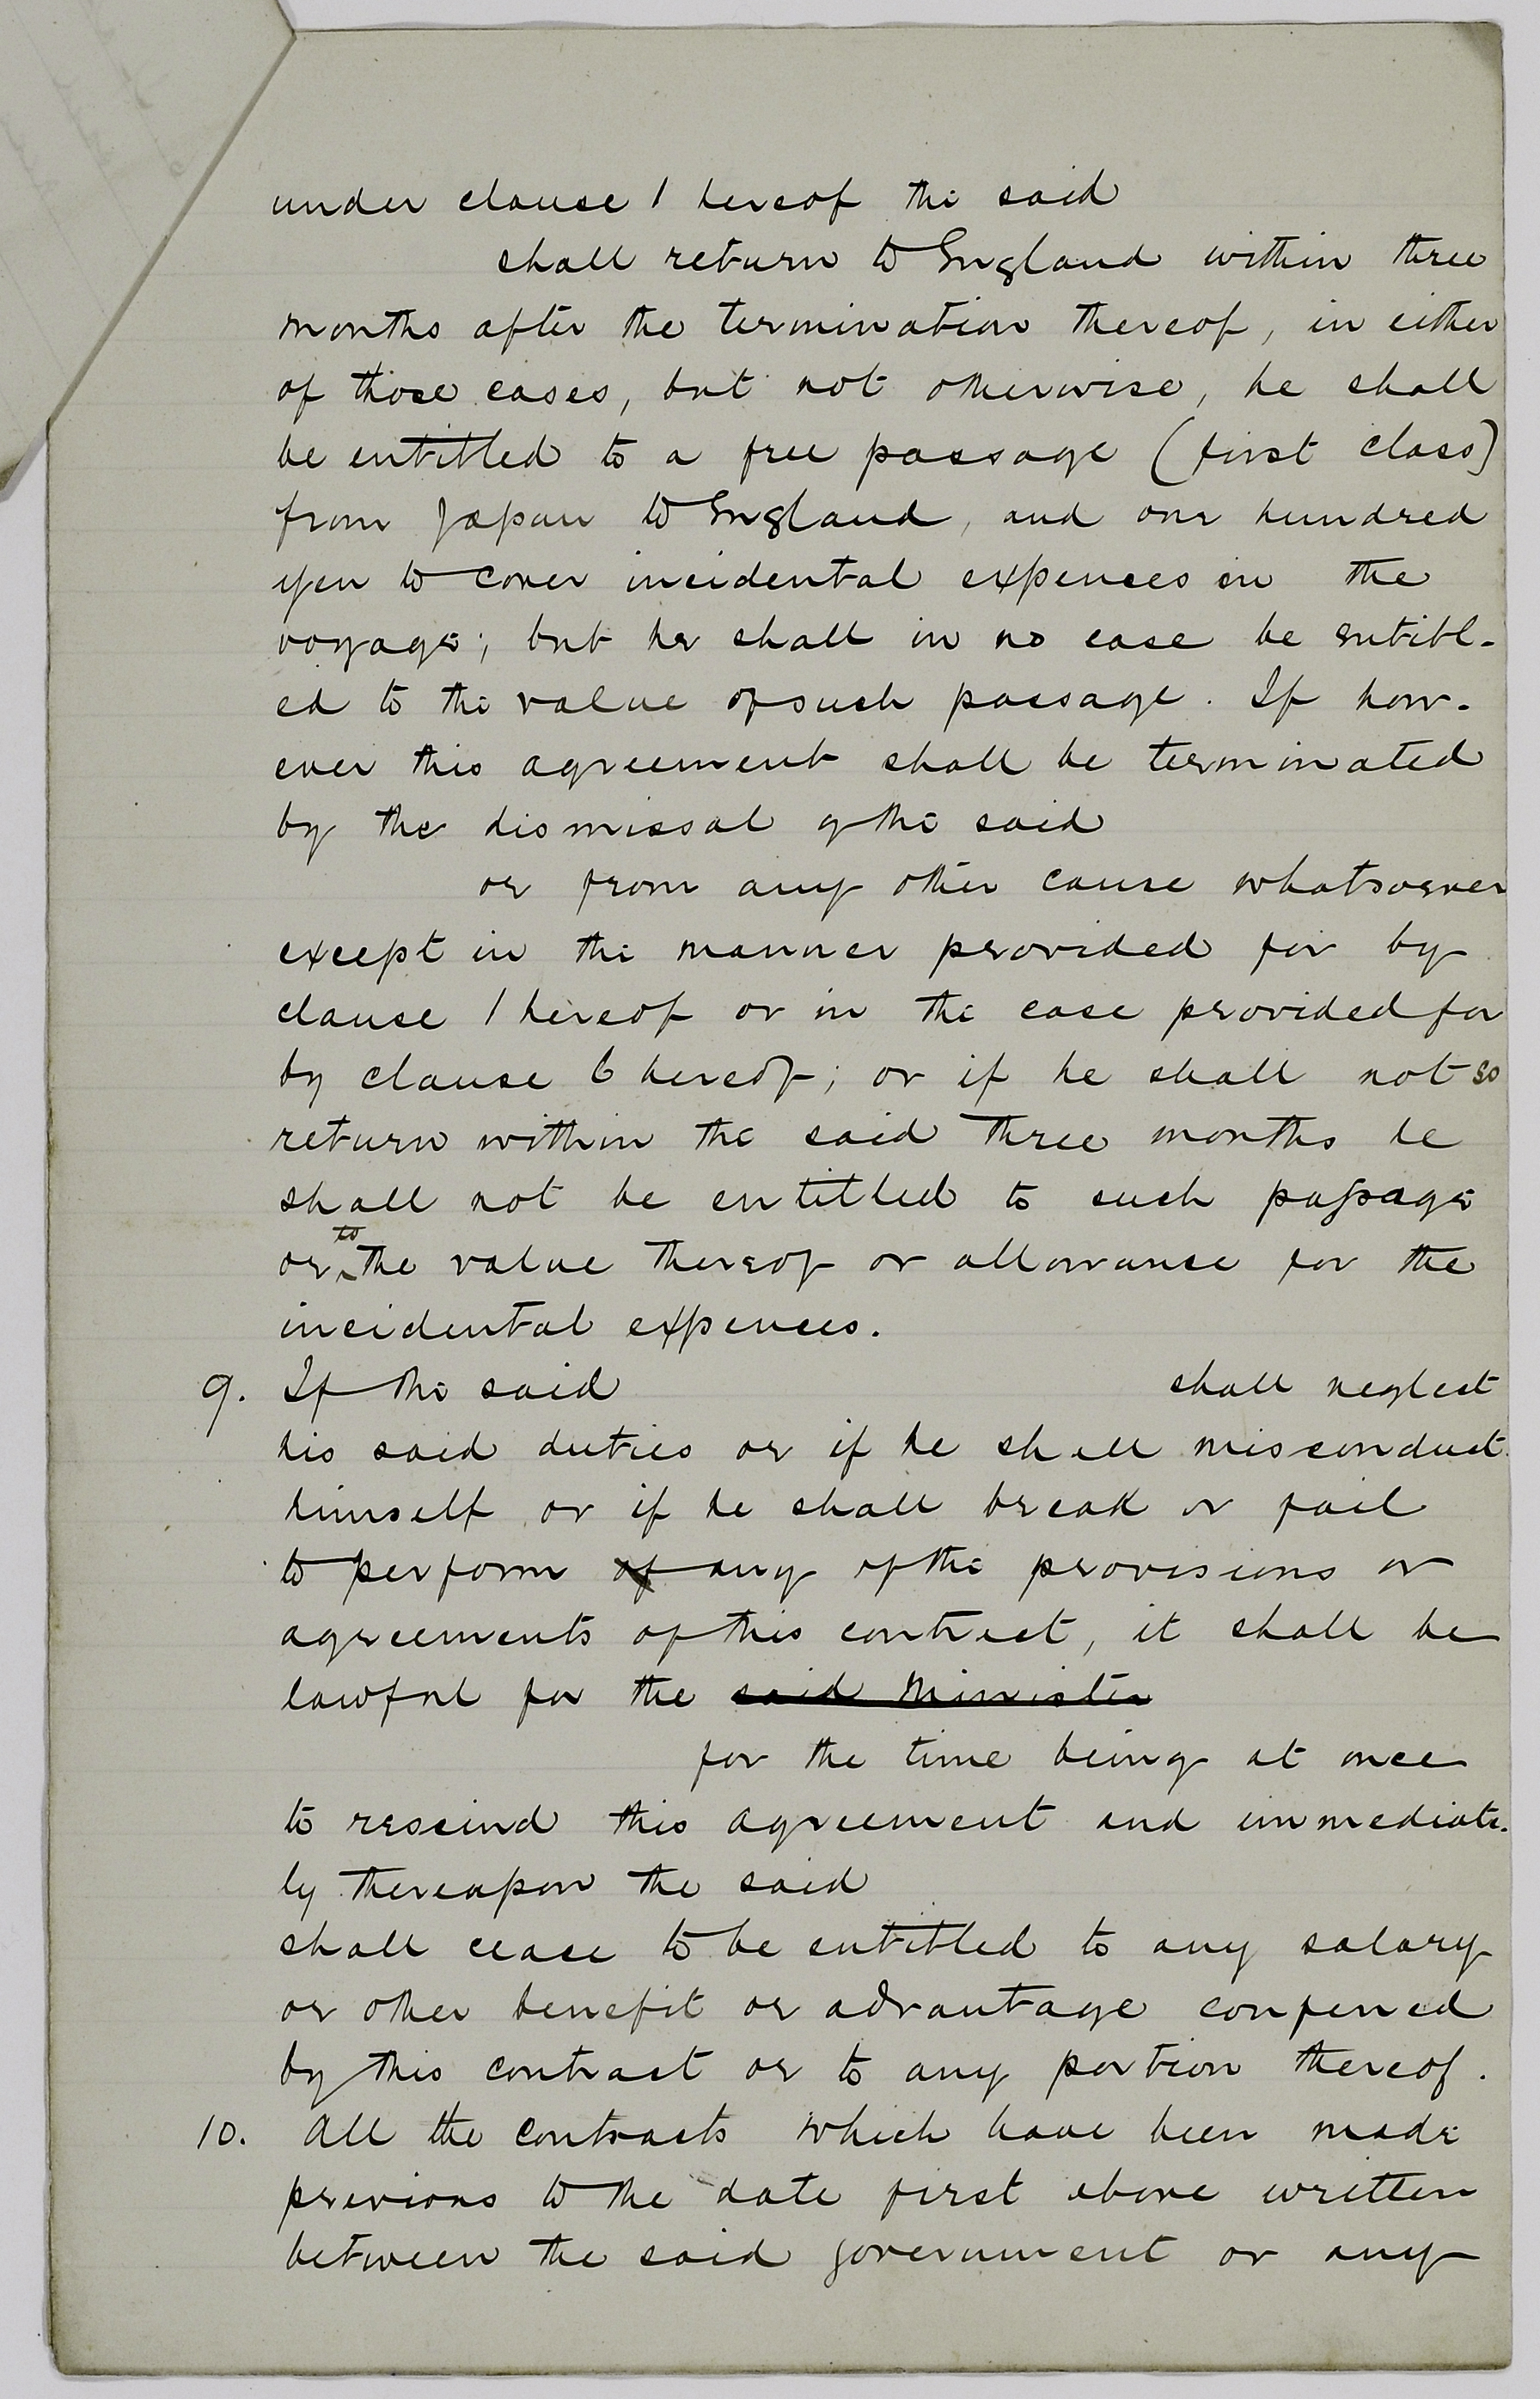 under clause 1 hereof the said
shall return to England within three
months after the termination thereof, in either
of those cases, but not otherwise, he shall
be entitled to a free passage (first class)
from Japan to England, and one hundred
yen to cover incidental expences on the
voyage; but he shall in no case be entitl-
ed to the value of such passage. If how-
ever this agreement shall be terminated
by the dismissal of the said
or from any other cause whatsoever
except in the manner provided for by
clause 1 hereof or in the case provided for
by clause 6 hereof; or if he shall not so
return within the said three months he
shall not be entitled to such passage
or to the value thereof or allowance for the
incidental expences.
9. If the said shall neglect
his said duties or if he shall misconduct
himself or if he shall break or fail
to perform of any of the provisions or
agreements of this contract, it shall be
lawful for the said Minister
for the time being at once
to rescind this agreement and immediate-
ly thereupon the said
shall cease to be entitled to any salary
or other benefit or advantage conferred
by this contract or to any portion thereof.
10. All the contracts which have been made
previous to the date first above written
between the said government or any